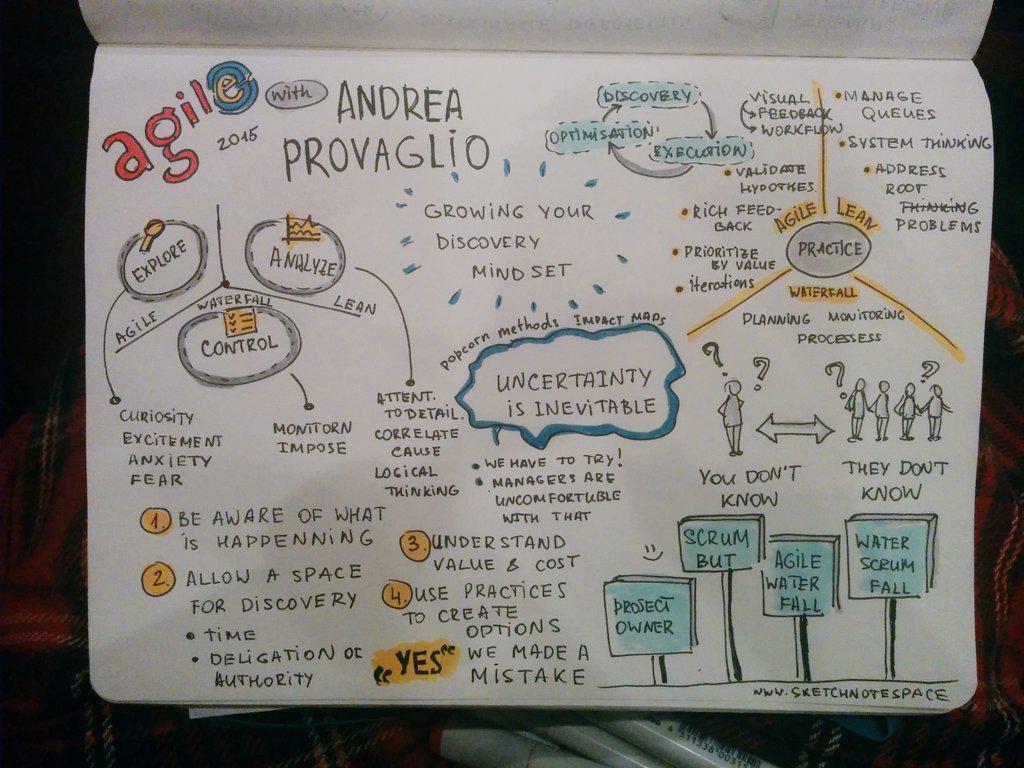 agile
with
2015
ANDREA
PROVAGLIO
GROWING YOUR
DISCOVERY
MINDSET
DISCOVERY
OPTIMISATION
EXECUTION
VISUAL
FEEDBACK
WORKFLOW
• VALIDATE
HYPOTHES.
• RICH FEED-
BACK
• PRIORITIZE
BY VALUE
• iterations
• MANAGE
QUEUES
• SYSTEM THINKING
• ADDRESS
ROOT
THINKING
PROBLEMS
AGILE
LEAN
PRACTICE
WATERFALL
PLANNING MONITORING
PROCESSESS
EXPLORE
ANALYZE
AGILE
WATERFALL
LEAN
CONTROL
CURIOSITY
EXCITEMENT
ANXIETY
FEAR
MONITORN
IMPOSE
ATTENT.
TO DETAIL.
CORRELATE
CAUSE
LOGICAL
THINKING
popcorn methods IMPACT MAPS
UNCERTAINTY
IS INEVITABLE
• WE HAVE TO TRY!
• MANAGERS ARE
UNCOMFORTUBLE
WITH THAT
? ?
YOU DON'T
KNOW
? ?
THEY DON'T
KNOW
1. BE AWARE OF WHAT
IS HAPPENNING
2. ALLOW A SPACE
FOR DISCOVERY
• TIME
• DELIGATION OF
AUTHORITY
3. UNDERSTAND
VALUE & COST
4. USE PRACTICES
TO CREATE
OPTIONS
"YES" WE MADE A
MISTAKE
PROJECT
OWNER
SCRUM
BUT
AGILE
WATER
FALL
WATER
SCRUM
FALL
WWW.SKETCHNOTESPACE